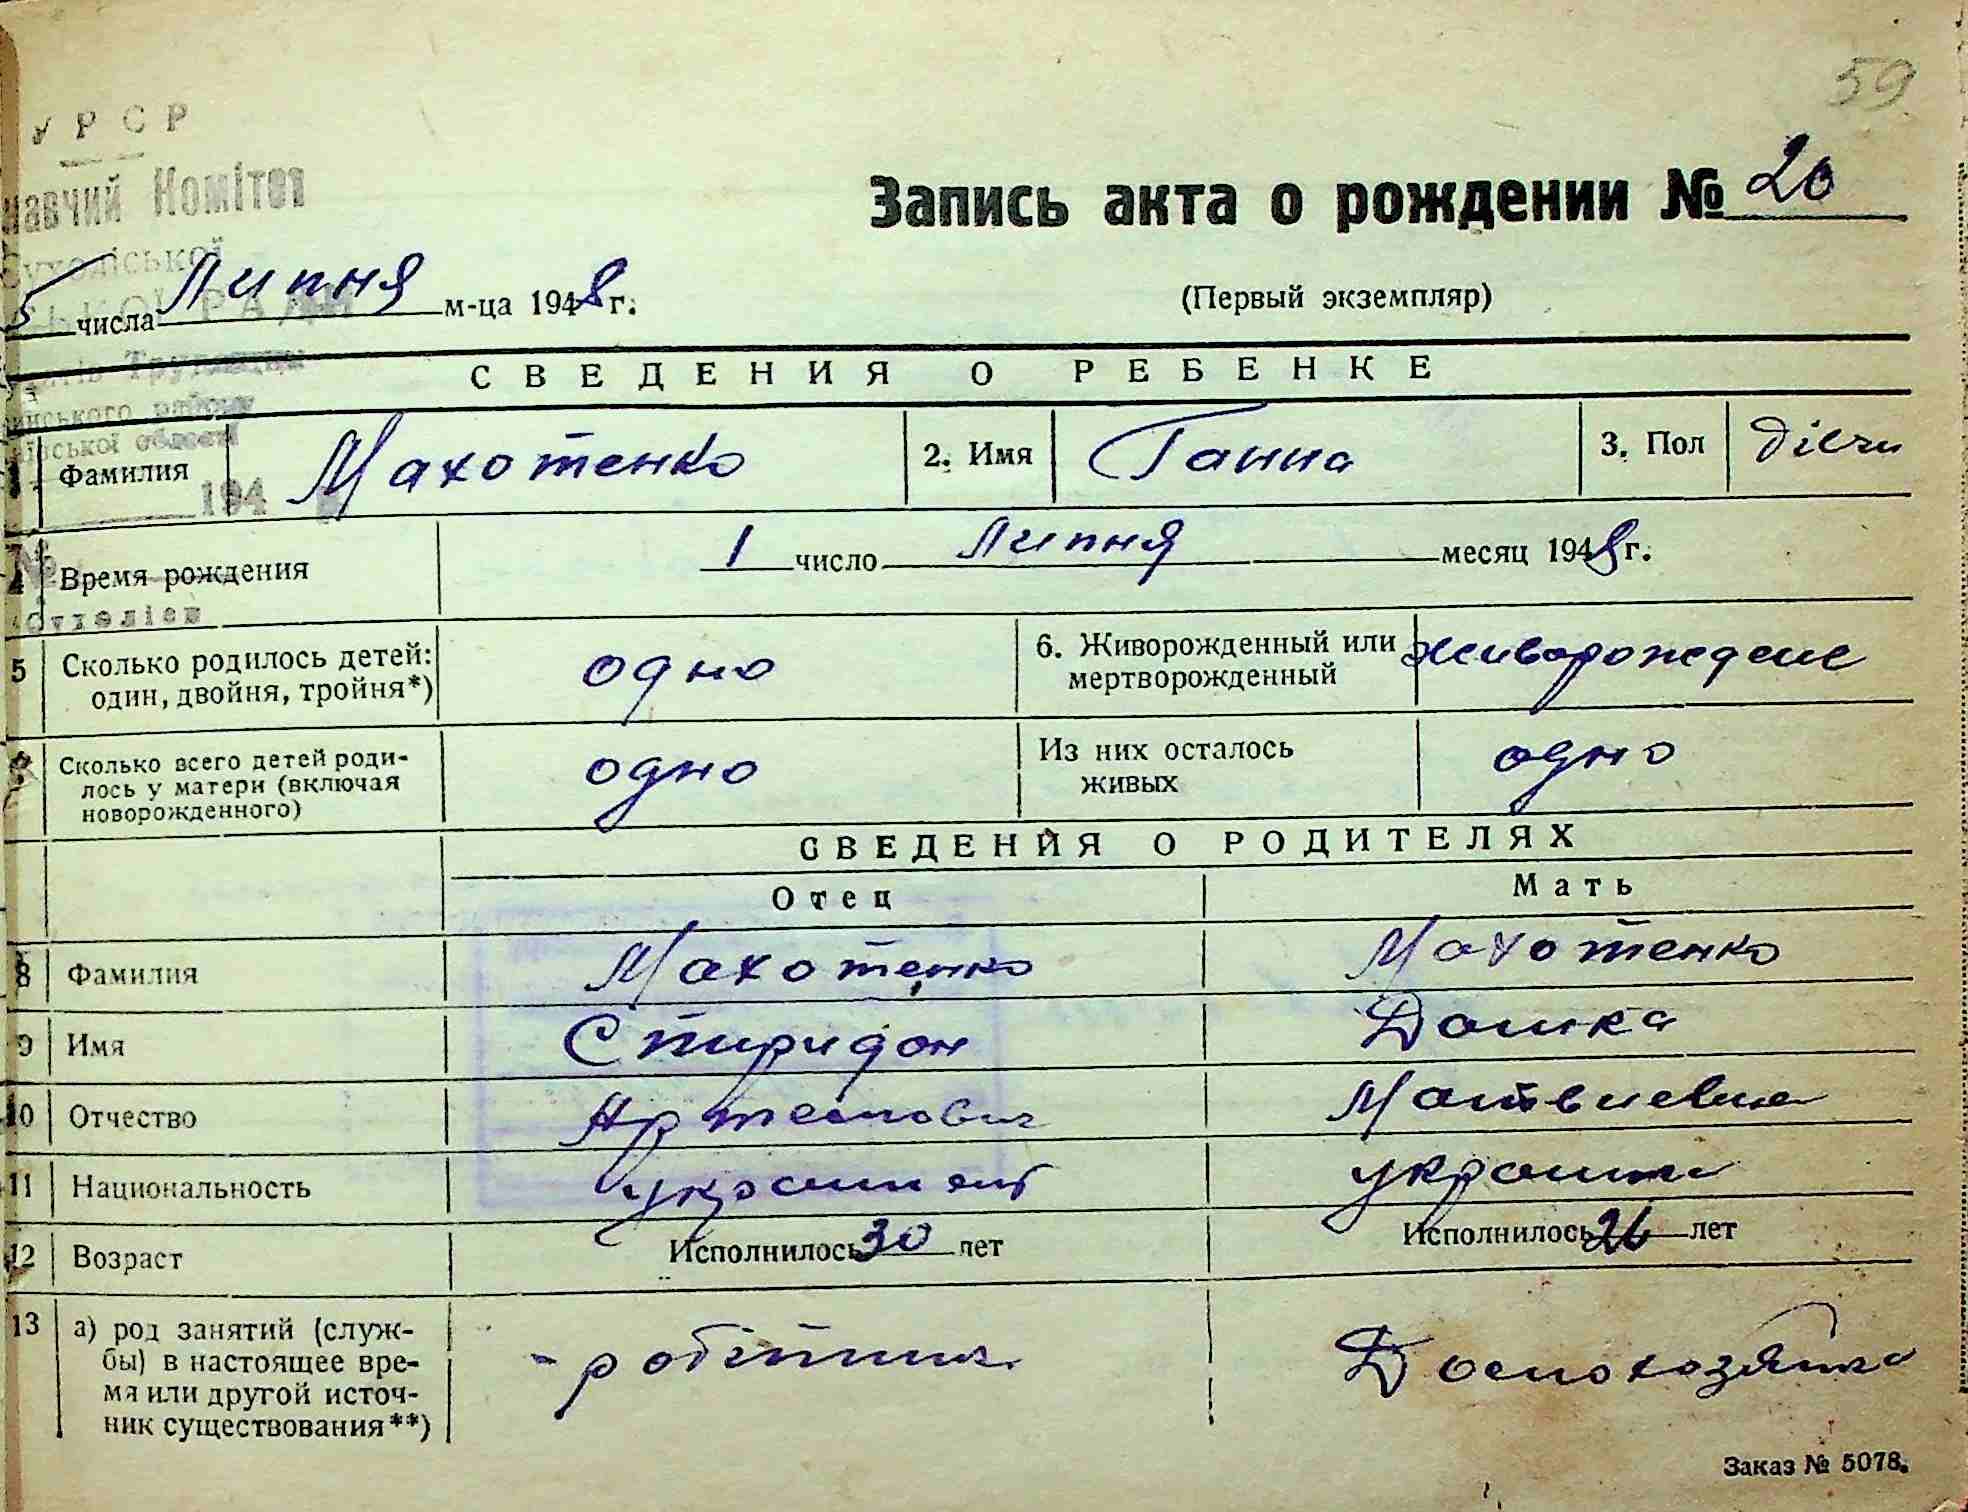 59
УРСР
навчий Комітет
Запись акта о рождении № 20
5 числа Липня м-ца 1948 г.
(Первый экземпляр)
СВЕДЕНИЯ О РЕБЕНКЕ
1 Фамилия Махотенко 2. Имя Ганна 3. Пол
194
4 Время рождения 1 число Липня месяц 1948 г.
5 Сколько родилось детей: один, двойня, тройня*) одно 6. Живорожденный или мертворожденный живорождене
Сколько всего детей родилось у матери (включая новорожденного) одно Из них осталось живых одно
СВЕДЕНИЯ О РОДИТЕЛЯХ
Отец Мать
8 Фамилия Махотенко Махотенко
9 Имя Спиридон Домка
10 Отчество Артемович Матвиевна
11 Национальность украинец украинка
12 Возраст Исполнилось 30 лет Исполнилось 26 лет
13 а) род занятий (службы) в настоящее время или другой источник существования**) робітник Домохозяйка
Заказ № 5078.